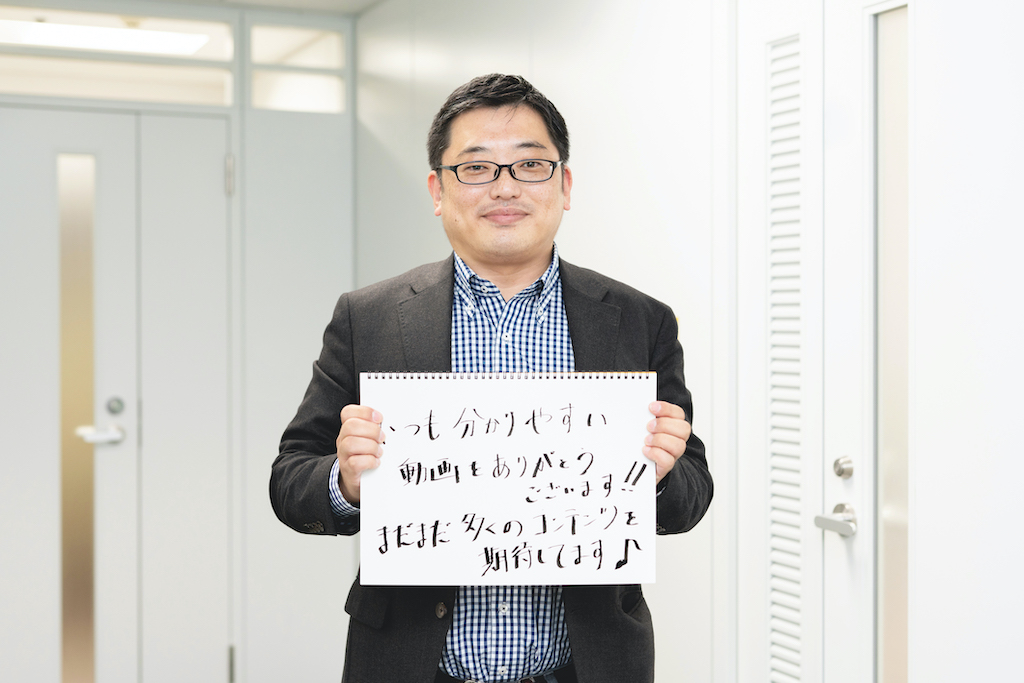 いつも分かりやすい
動画をありがとう
ございます!!
まだまだ多くのコンテンツを
期待してます♪